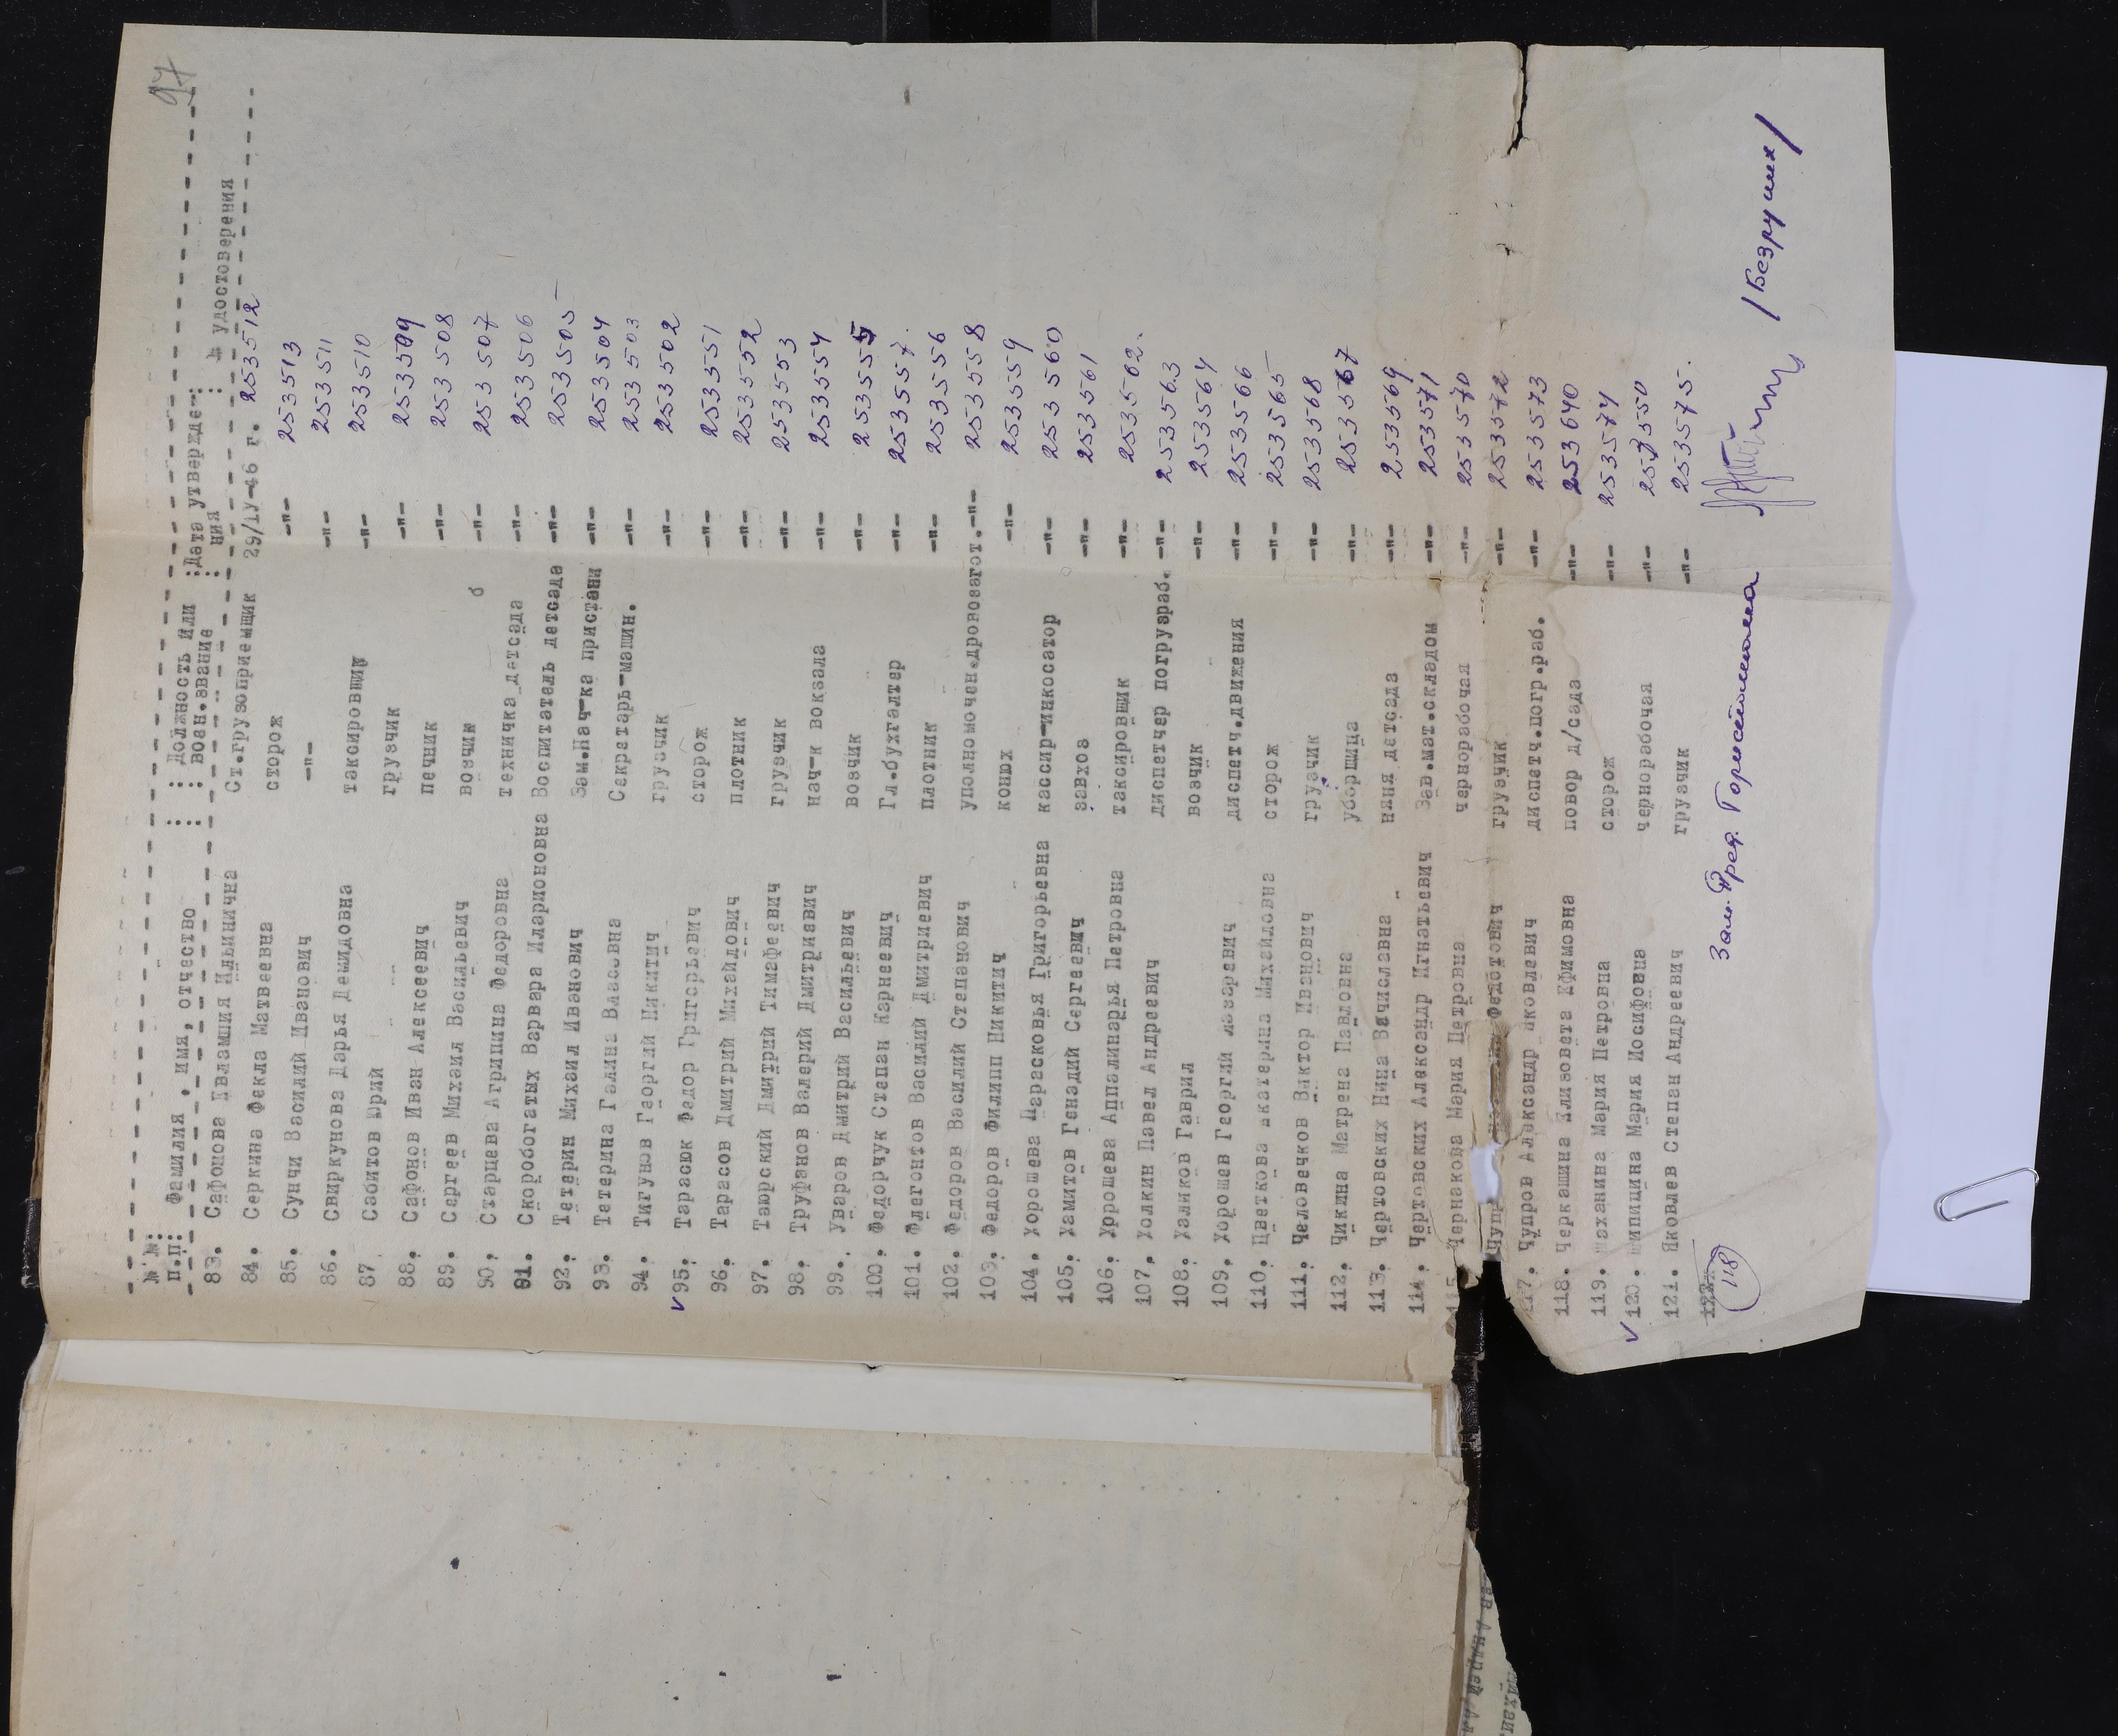 97
№№: Фамилия , имя, отчество : Должность или :Дата утвержде-: № удостоверения
п.п: : воен.звание : ния :
83. Сафонова Евлампия Ильинична Ст.грузоприемщик 29/IУ-46 г. 253512
84. Серкина Фекла Матвеевна сторож -"- 253513
85. Сунчи Василий Иванович -"- -"- 253511
86. Свиркунова Дарья Демидовна таксировщик -"- 253510
87 Сабитов Юрий грузчик -"- 253509
88. Сафонов Иван Алексеевич печник -"- 253508
89. Сергеев Михаил Васильевич возчик -"- 253507
90. Старцева Агрипина Федоровна техничка детсада -"- 253506
91. Скоробогатых Варвара Иларионовна Воспитатель детсада -"- 253505
92. Тетерин Михаил Иванович Зам.нач-ка пристани -"- 253504
93. Тетерина Галина Власовна Секретарь-машин. -"- 253503
94. Тигунов Георгий Никитич грузчик -"- 253502
95. Тарасюк Федор Григорьевич сторож -"- 253551
96. Тарасов Дмитрий Михайлович плотник -"- 253552
97. Таюрский Дмитрий Тимафеевич грузчик -"- 253553
98. Труфанов Валерий Дмитриевич нач-к вокзала -"- 253554
99. Уваров Дмитрий Васильевич возчик -"- 253555
100. Федорчук Степан Карнеевич Гл.бухгалтер -"- 253557.
101. Флегонтов Василий Дмитриевич плотник -"- 253556
102. Федоров Василий Степанович уполномочен.дровозагот.-"- 253558
103. Федоров Филипп Никитич конюх -"- 253559
104. Хорошева Парасковья Григорьевна кассир-инкосатор -"- 253560
105. Хамитов Генадий Сергеевич завхоз -"- 253561
106. Хорошева Аппалинарья Петровна таксировщик -"- 253562.
107. Холкин Павел Андреевич диспетчер погрузраб. -"- 253563
108. Халиков Гаврил возчик -"- 253564
109. Хорошев Георгий Лазаревич диспетч.движения -"- 253566
110. Цветкова Екатерина Михайловна сторож -"- 253565
111. Человечков Виктор Иванович грузчик -"- 253568
112. Чикина Матрена Павловна уборщица -"- 253567
113. Чертовских Нина Вячиславна няня детсада -"- 253569
114. Чертовских Александр Игнатьевич Зав.мат.складом -"- 253571
115. Чернакова Мария Петровна чернорабочая -"- 253570
Федотович грузчик -"- 253572
117. Чупров Александр Яковлевич диспетч.погр.раб. -"- 253573
118. Черкашина Елизовета Ефимовна повор д/сада -"- 253640
119. Шаханина Мария Петровна сторож -"- 253574
120. Шипицина Мария Иосифовна чернорабочая -"- 253550
121. Яковлев Степан Андреевич грузчик -"- 253575.
122.
118
Зам. Пред. Горисполкома /Безруких/